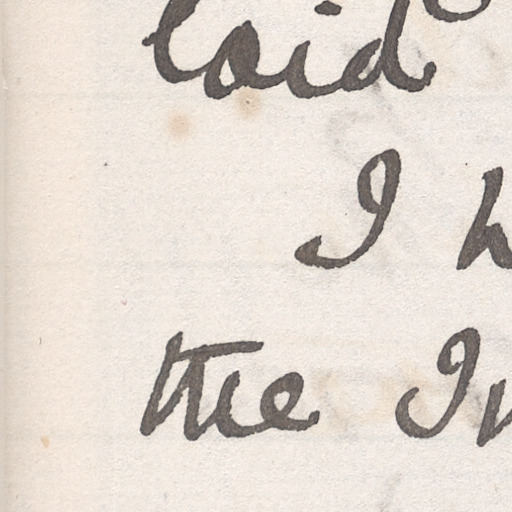 laid
I h
the In